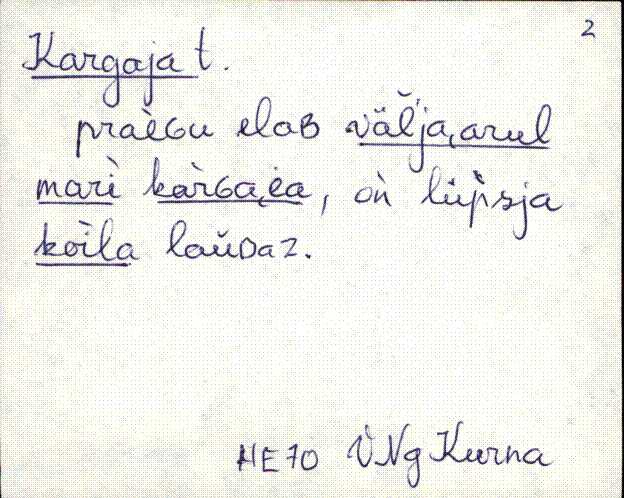 2
Kargaja t.
praèɢu elaʙ väľja‿arul
marì kàrɢa‿ia, oǹ lüp̀sja
kòila laŭᴅaz.
HE70 VNg Kurna